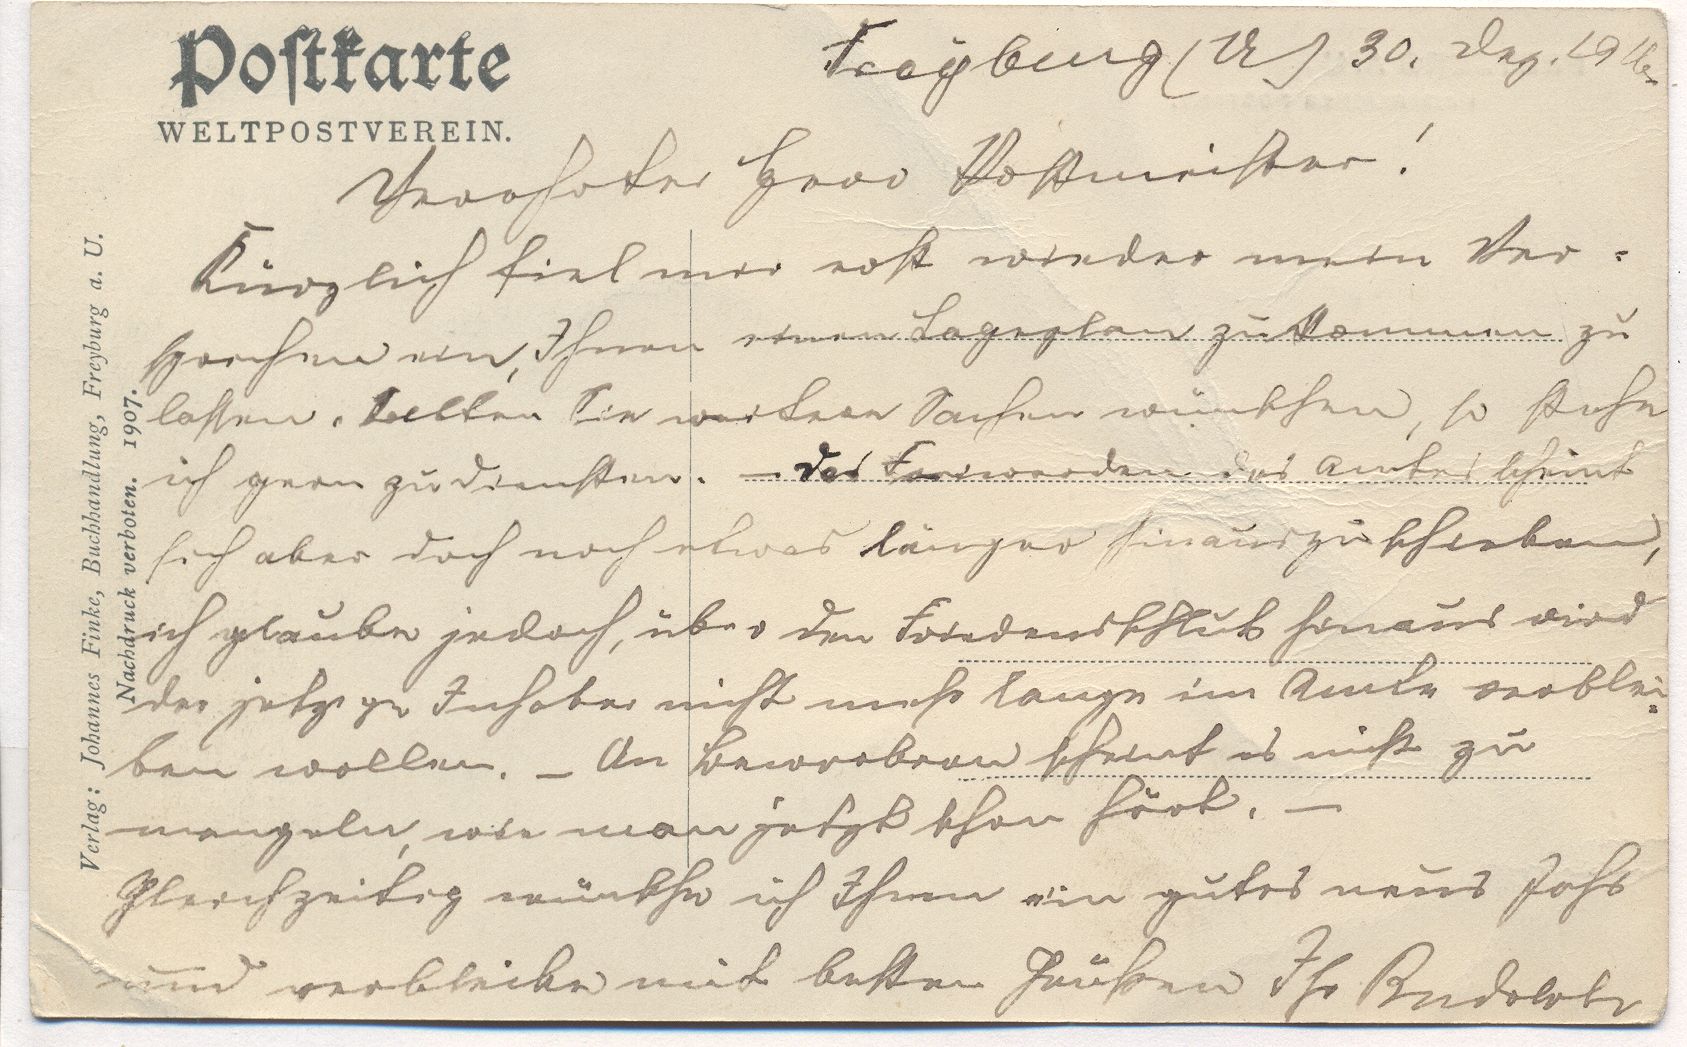 Postkarte
WELTPOSTVEREIN.
Verlag: Johannes Finke, Buchhandlung, Freyburg a. U.
Nachdruck verboten. 1907.
Freyburg (U) 30. Dez. 1916.
Verehrter Herr Postmeister!
Kürzlich fiel mir erst wieder mein Ver-
sprechen ein, Ihnen einen Lageplan zukommen zu
lassen. Sollten Sie weitere Sachen wünschen, so stehe
ich gern zu Diensten. – Das Freiwerden des Amtes scheint
sich aber doch noch etwas länger hinauszuschieben,
ich glaube jedoch, über den Friedensschluß hinaus wird
der jetzige Inhaber nicht mehr lange im Amte verblei-
ben wollen. – An Bewerbern scheint es nicht zu
mangeln, wie man jetzt schon hört. –
Gleichzeitig wünsche ich Ihnen ein gutes neues Jahr
und verbleibe mit besten Grüßen Ihr